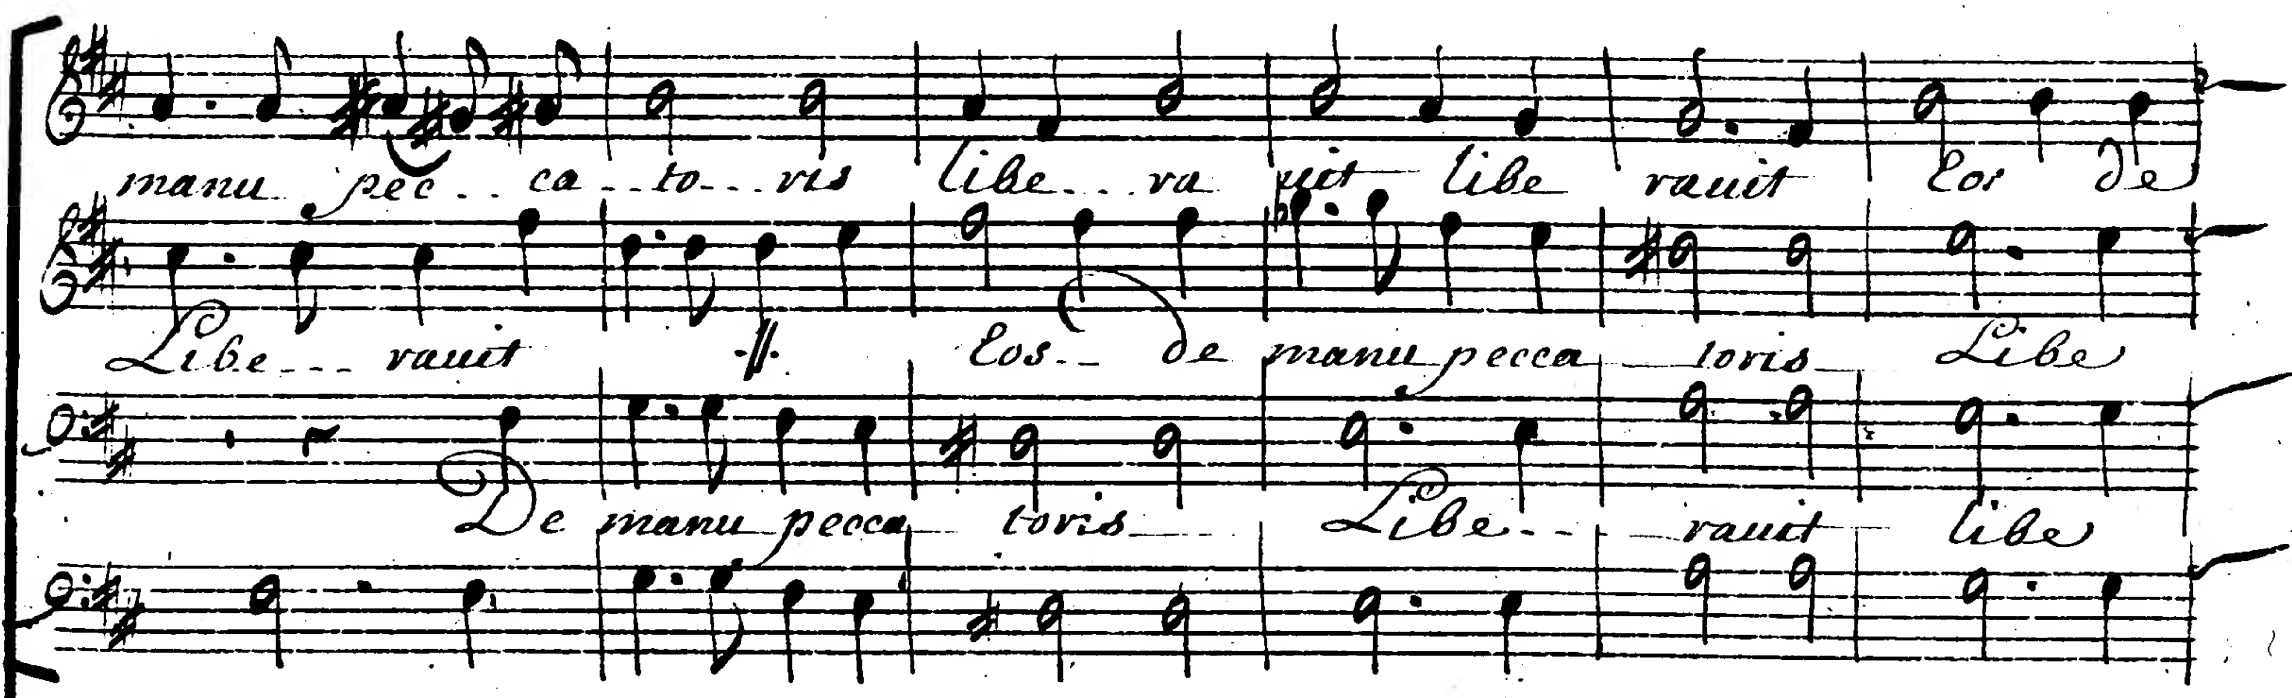 manu pec... ca...to...ris libe...ra uit libe rauit Eos de
Libe... rauit .//. Eos... de manu pecca toris Libe
De manu pecca toris Libe... rauit libe